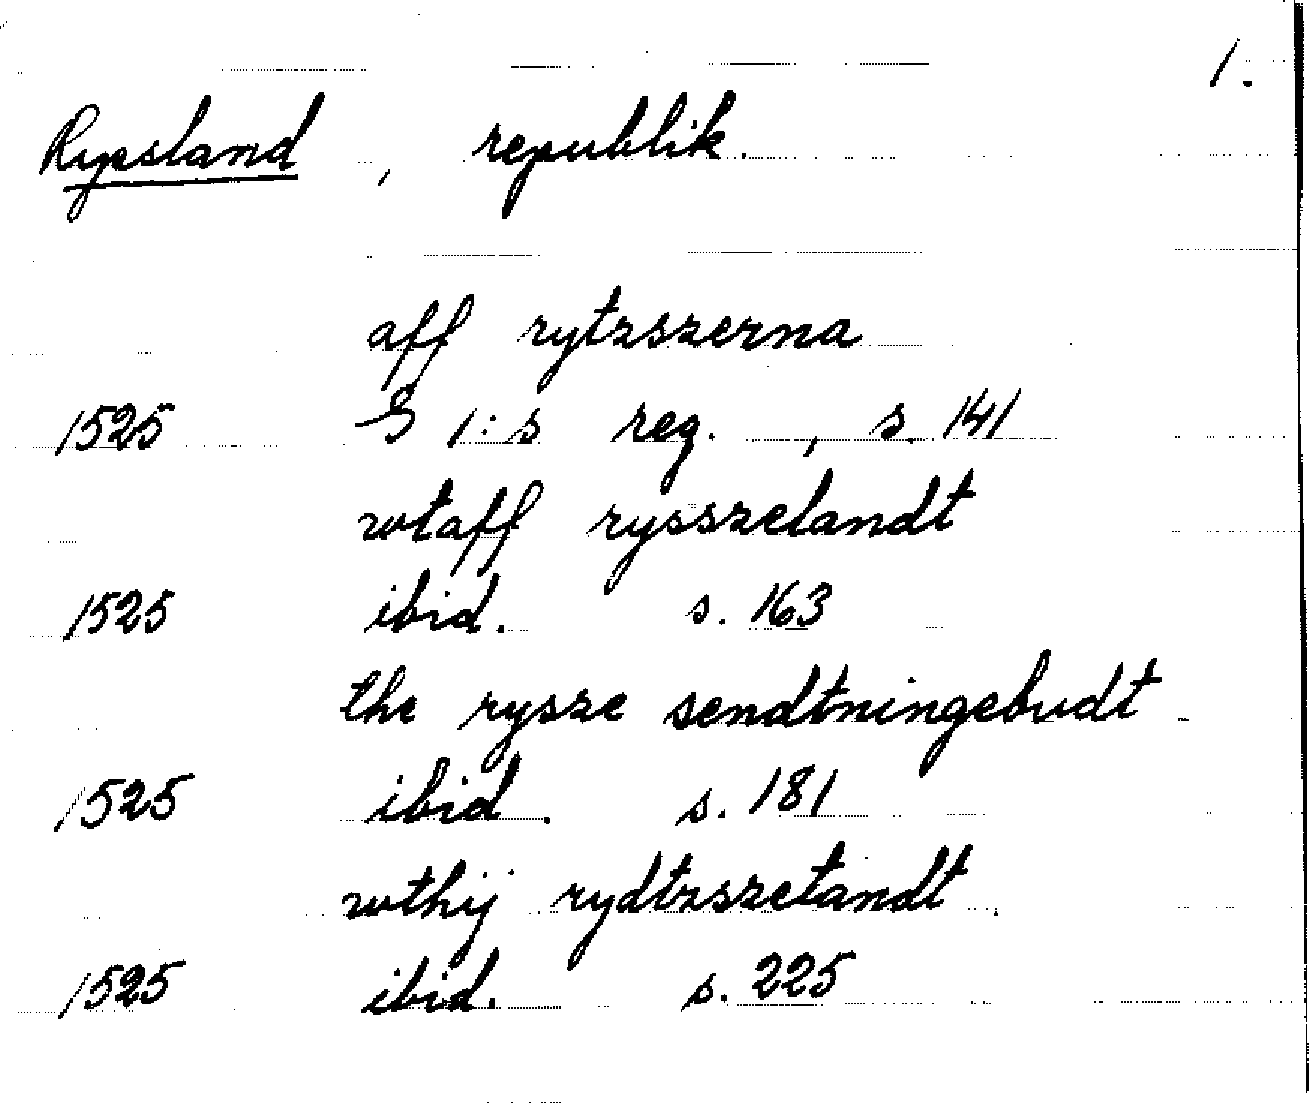 1.
Ryssland, republik.
aff rytzszerna
1525 G 1:s reg., s. 141
wtaff rysszelandt
1525 ibid. s. 163
the rysze sendtningebudt
1525 ibid. s. 181
wthij rydtzszelandt
1525 ibid. s. 225